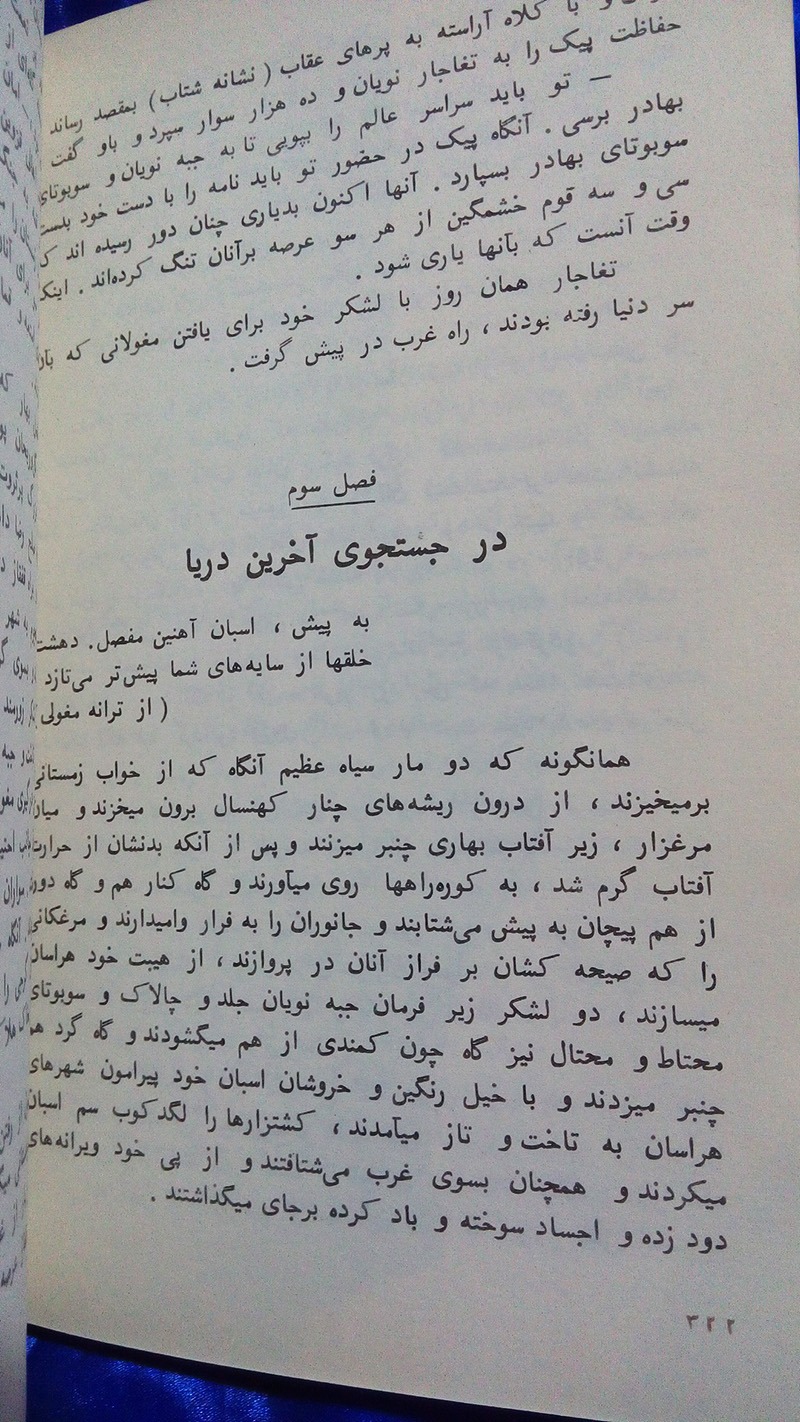 و با کلاه آراسته به پرهای عقاب ( نشانه شتاب ) بمقصد رساند
حفاظت پیک را به تغاجار نویان و ده هزار سوار سپرد و باو گفت
— تو باید سراسر عالم را بپویی تا به جبه نویان و سوبوتای
بهادر برسی . آنگاه پیک در حضور تو باید نامه را با دست خود بدست
سوبوتای بهادر بسپارد . آنها اکنون بدیاری چنان دور رسیده اند ک
سی و سه قوم خشمگین از هر سو عرصه برآنان تنگ کرده‌اند . اینک
وقت آنست که بآنها یاری شود .
تغاجار همان روز با لشکر خود برای یافتن مغولانی که بآن
سر دنیا رفته بودند ، راه غرب در پیش گرفت .
فصل سوم
در جستجوی آخرین دریا
به پیش ، اسبان آهنین مفصل. دهشت
خلقها از سایه‌های شما پیش‌تر می‌تازد
( از ترانه مغولی
همانگونه که دو مار سیاه عظیم آنگاه که از خواب زمستانی
برمیخیزند ، از درون ریشه‌های چنار کهنسال برون میخزند و میان
مرغزار ، زیر آفتاب بهاری چنبر میزنند و پس از آنکه بدنشان از حرارت
آفتاب گرم شد ، به کوره‌راهها روی میآورند و گاه کنار هم و گاه دور
از هم پیچان به پیش می‌شتابند و جانوران را به فرار وامیدارند و مرغکانی
را که صیحه کشان بر فراز آنان در پروازند ، از هیبت خود هراسان
میسازند ، دو لشکر زیر فرمان جبه نویان جلد و چالاک و سوبوتای
محتاط و محتال نیز گاه چون کمندی از هم میگشودند و گاه گرد هم
چنبر میزدند و با خیل رنگین و خروشان اسبان خود پیرامون شهرهای
هراسان به تاخت و تاز میآمدند ، کشتزارها را لگدکوب سم اسبان
میکردند و همچنان بسوی غرب می‌شتافتند و از پی خود ویرانه‌های
دود زده و اجساد سوخته و باد کرده برجای میگذاشتند .
۳۲۲